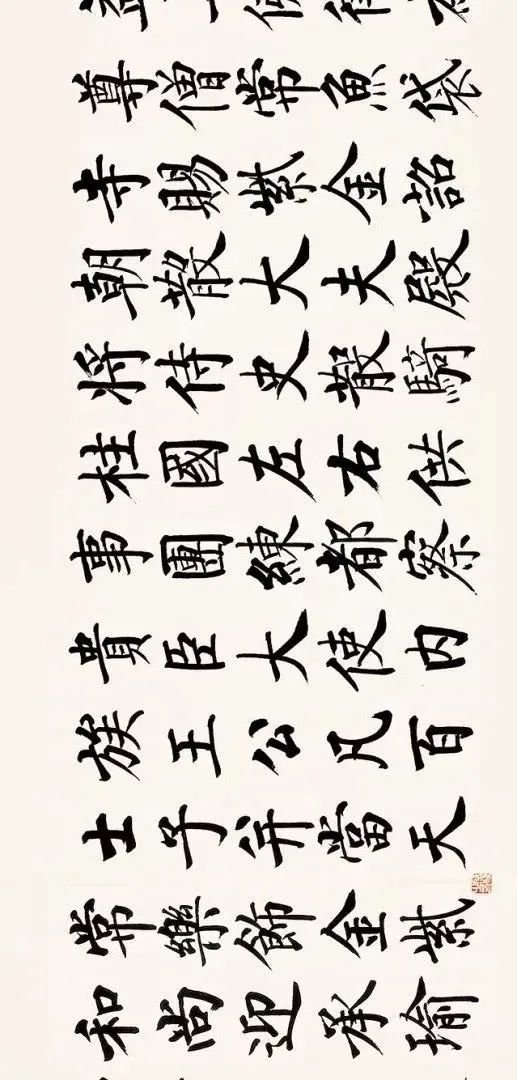 尊僧常魚袋
寺賜紫金詔
朝散大夫殿
将侍史散騎
柱國左右供
事團練都察
貴臣大使内
族王公凡百
士子并當天
常樂飾金紫
和尚迎承瑜